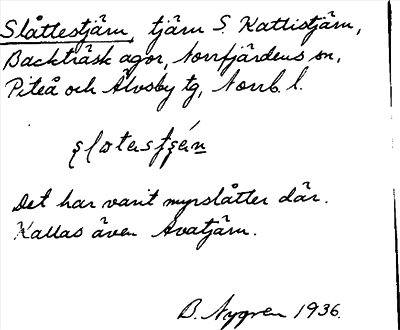 Slåttestjärn, tjärn S. Kattistjärn,
Backträsk ägor, Norrfjärdens sn,
Piteå och Älvsby tg, Norrb. l.
Det har varit myrslåtter där.
Kallas även Avatjärn.
B. Nygren 1936.